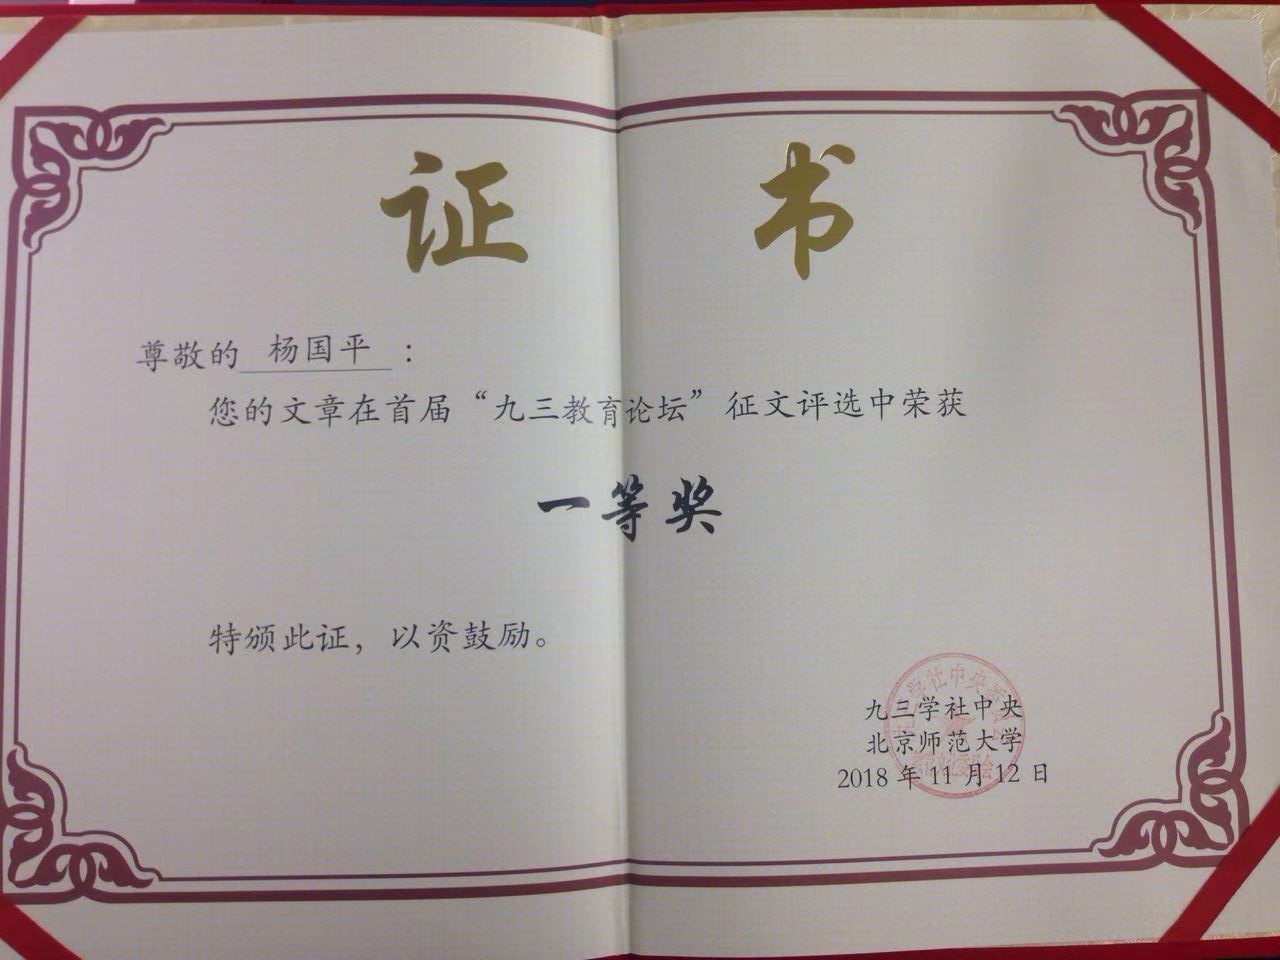 证 书
尊敬的 杨国平 ：
您的文章在首届“九三教育论坛”征文评选中荣获
一等奖
特颁此证，以资鼓励。
九三学社中央
北京师范大学
2018 年 11 月 12 日